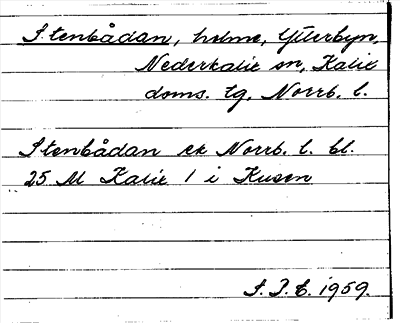 Stenbådan, holme, Ytterbyn,
Nederkalix sn, Kalix
doms. tg, Norrb. l.
Stenbådan ek Norrb. l. bl.
25 M Kalix 1 i Kusen
S.I.E. 1959.